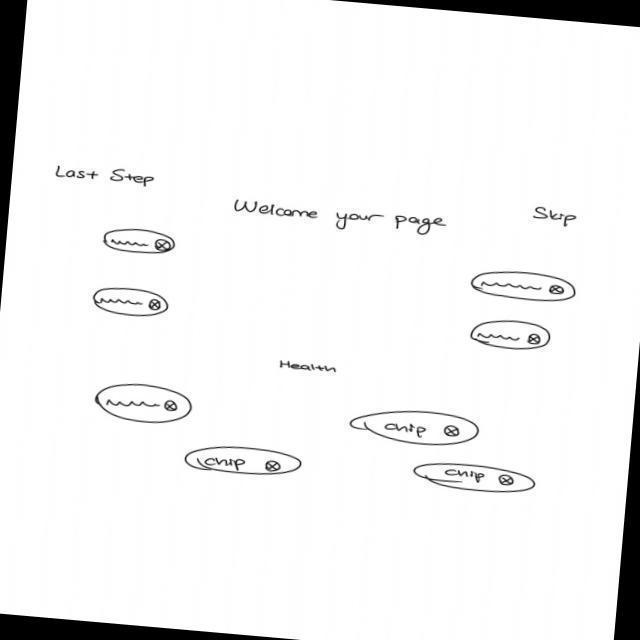 Last Step
Welcome your page
Skip
Health
chip
chip
chip